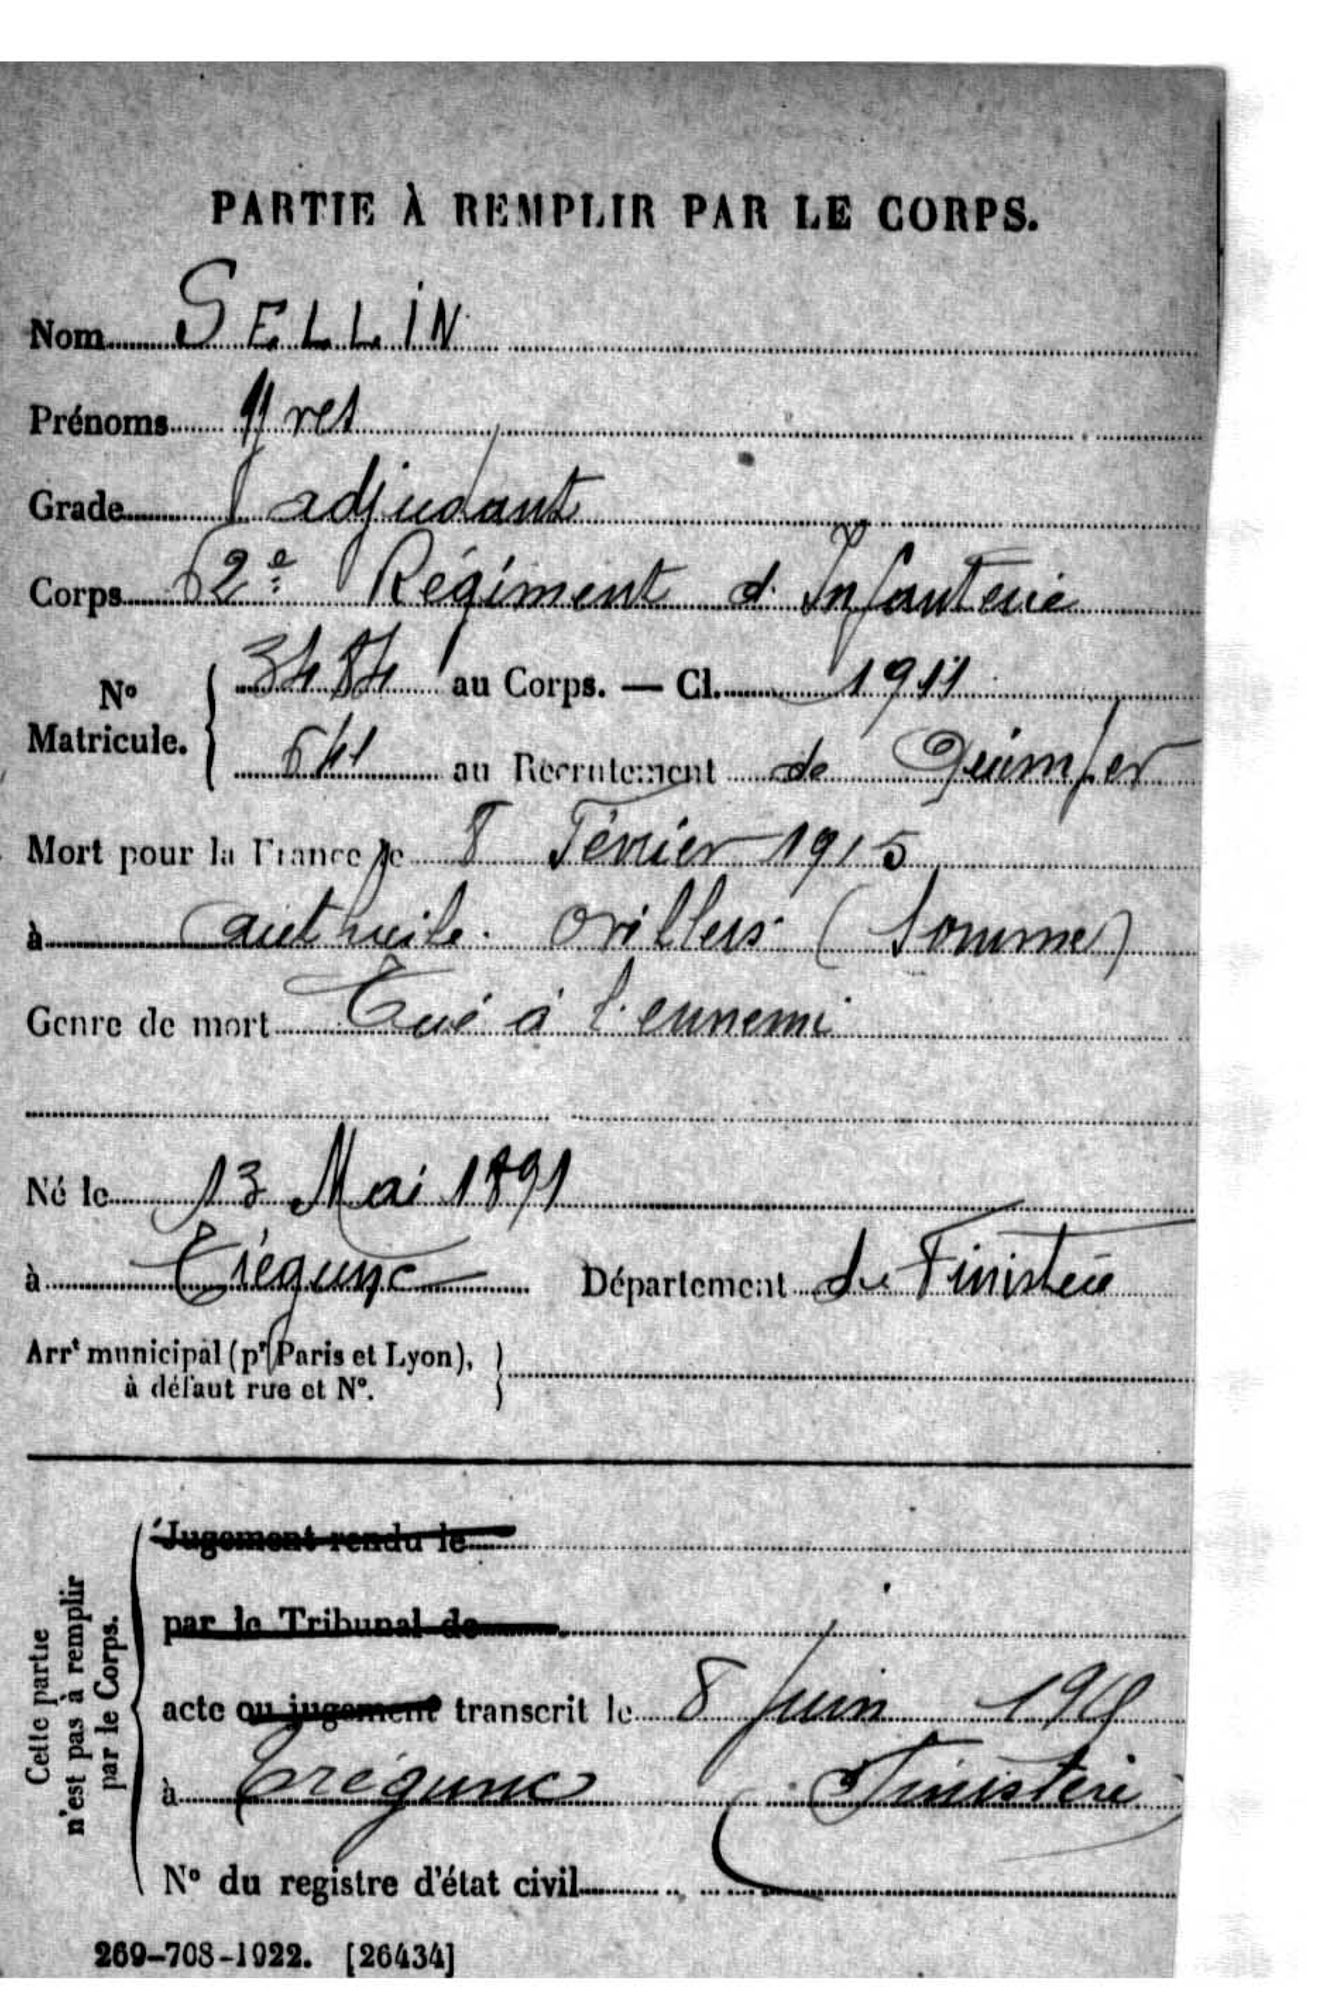 PARTIE À REMPLIR PAR LE CORPS.
Nom SELLIN
Prénoms Yves
Grade adjudant
Corps 62e Régiment d'Infanterie
3484 au Corps. — Cl. 1911
N°
Matricule.
641 au Recrutement de Quimper
Mort pour la France le 8 Février 1915
à authuile. Ovillers (Somme)
Genre de mort Tué à l'ennemi
Né le 13 Mai 1891
à Trégunc Département du Finistère
Arrt municipal (pr Paris et Lyon),
à défaut rue et N°.
Cette partie
n'est pas à remplir
par le Corps.
Jugement rendu le
par le Tribunal de
acte ou jugement transcrit le 8 Juin
à Trégunc (Finistère)
N° du registre d'état civil
269-708-1922. [26434]